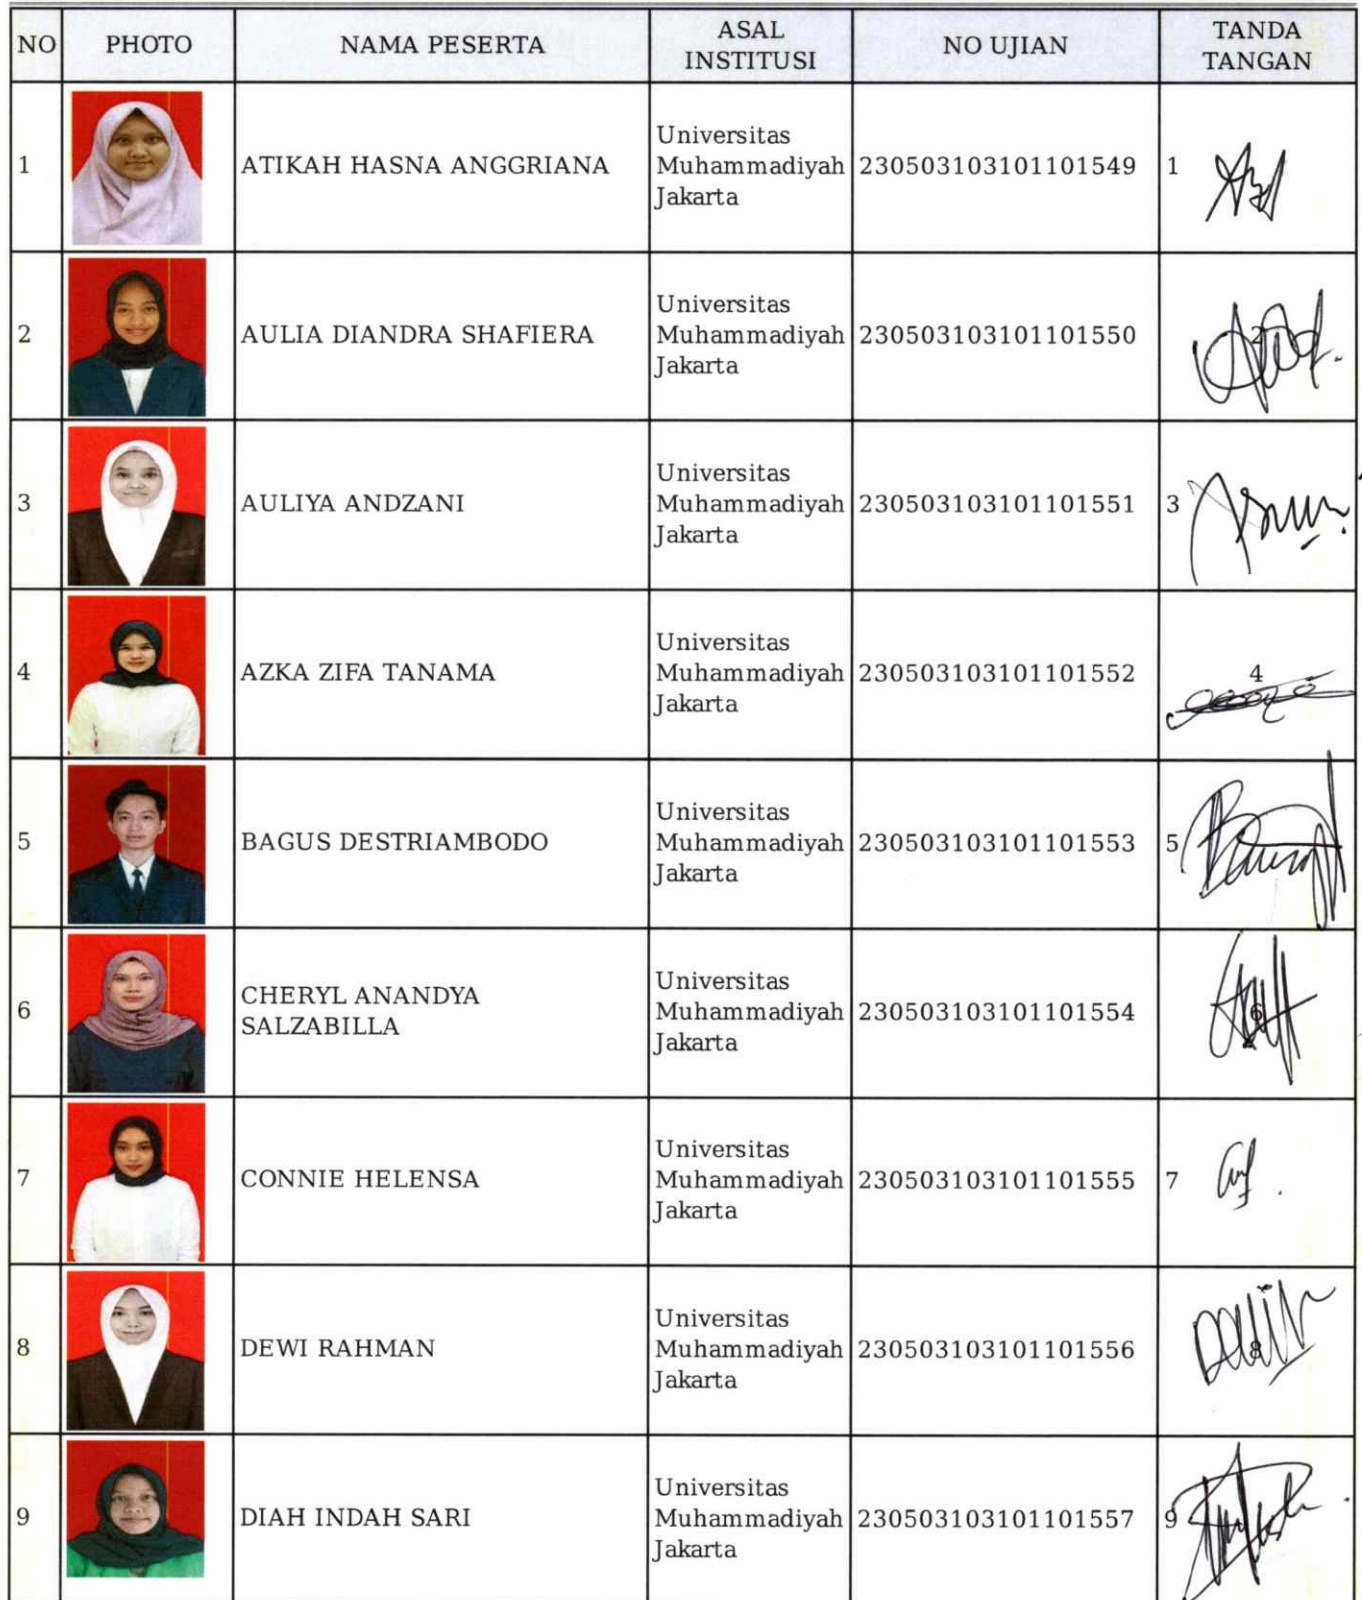 NO PHOTO NAMA PESERTA ASAL INSTITUSI NO UJIAN TANDA TANGAN
1 ATIKAH HASNA ANGGRIANA Universitas Muhammadiyah Jakarta 230503103101101549 1
2 AULIA DIANDRA SHAFIERA Universitas Muhammadiyah Jakarta 230503103101101550 2
3 AULIYA ANDZANI Universitas Muhammadiyah Jakarta 230503103101101551 3
4 AZKA ZIFA TANAMA Universitas Muhammadiyah Jakarta 230503103101101552 4
5 BAGUS DESTRIAMBODO Universitas Muhammadiyah Jakarta 230503103101101553 5
6 CHERYL ANANDYA SALZABILLA Universitas Muhammadiyah Jakarta 230503103101101554 6
7 CONNIE HELENSA Universitas Muhammadiyah Jakarta 230503103101101555 7
8 DEWI RAHMAN Universitas Muhammadiyah Jakarta 230503103101101556 8
9 DIAH INDAH SARI Universitas Muhammadiyah Jakarta 230503103101101557 9